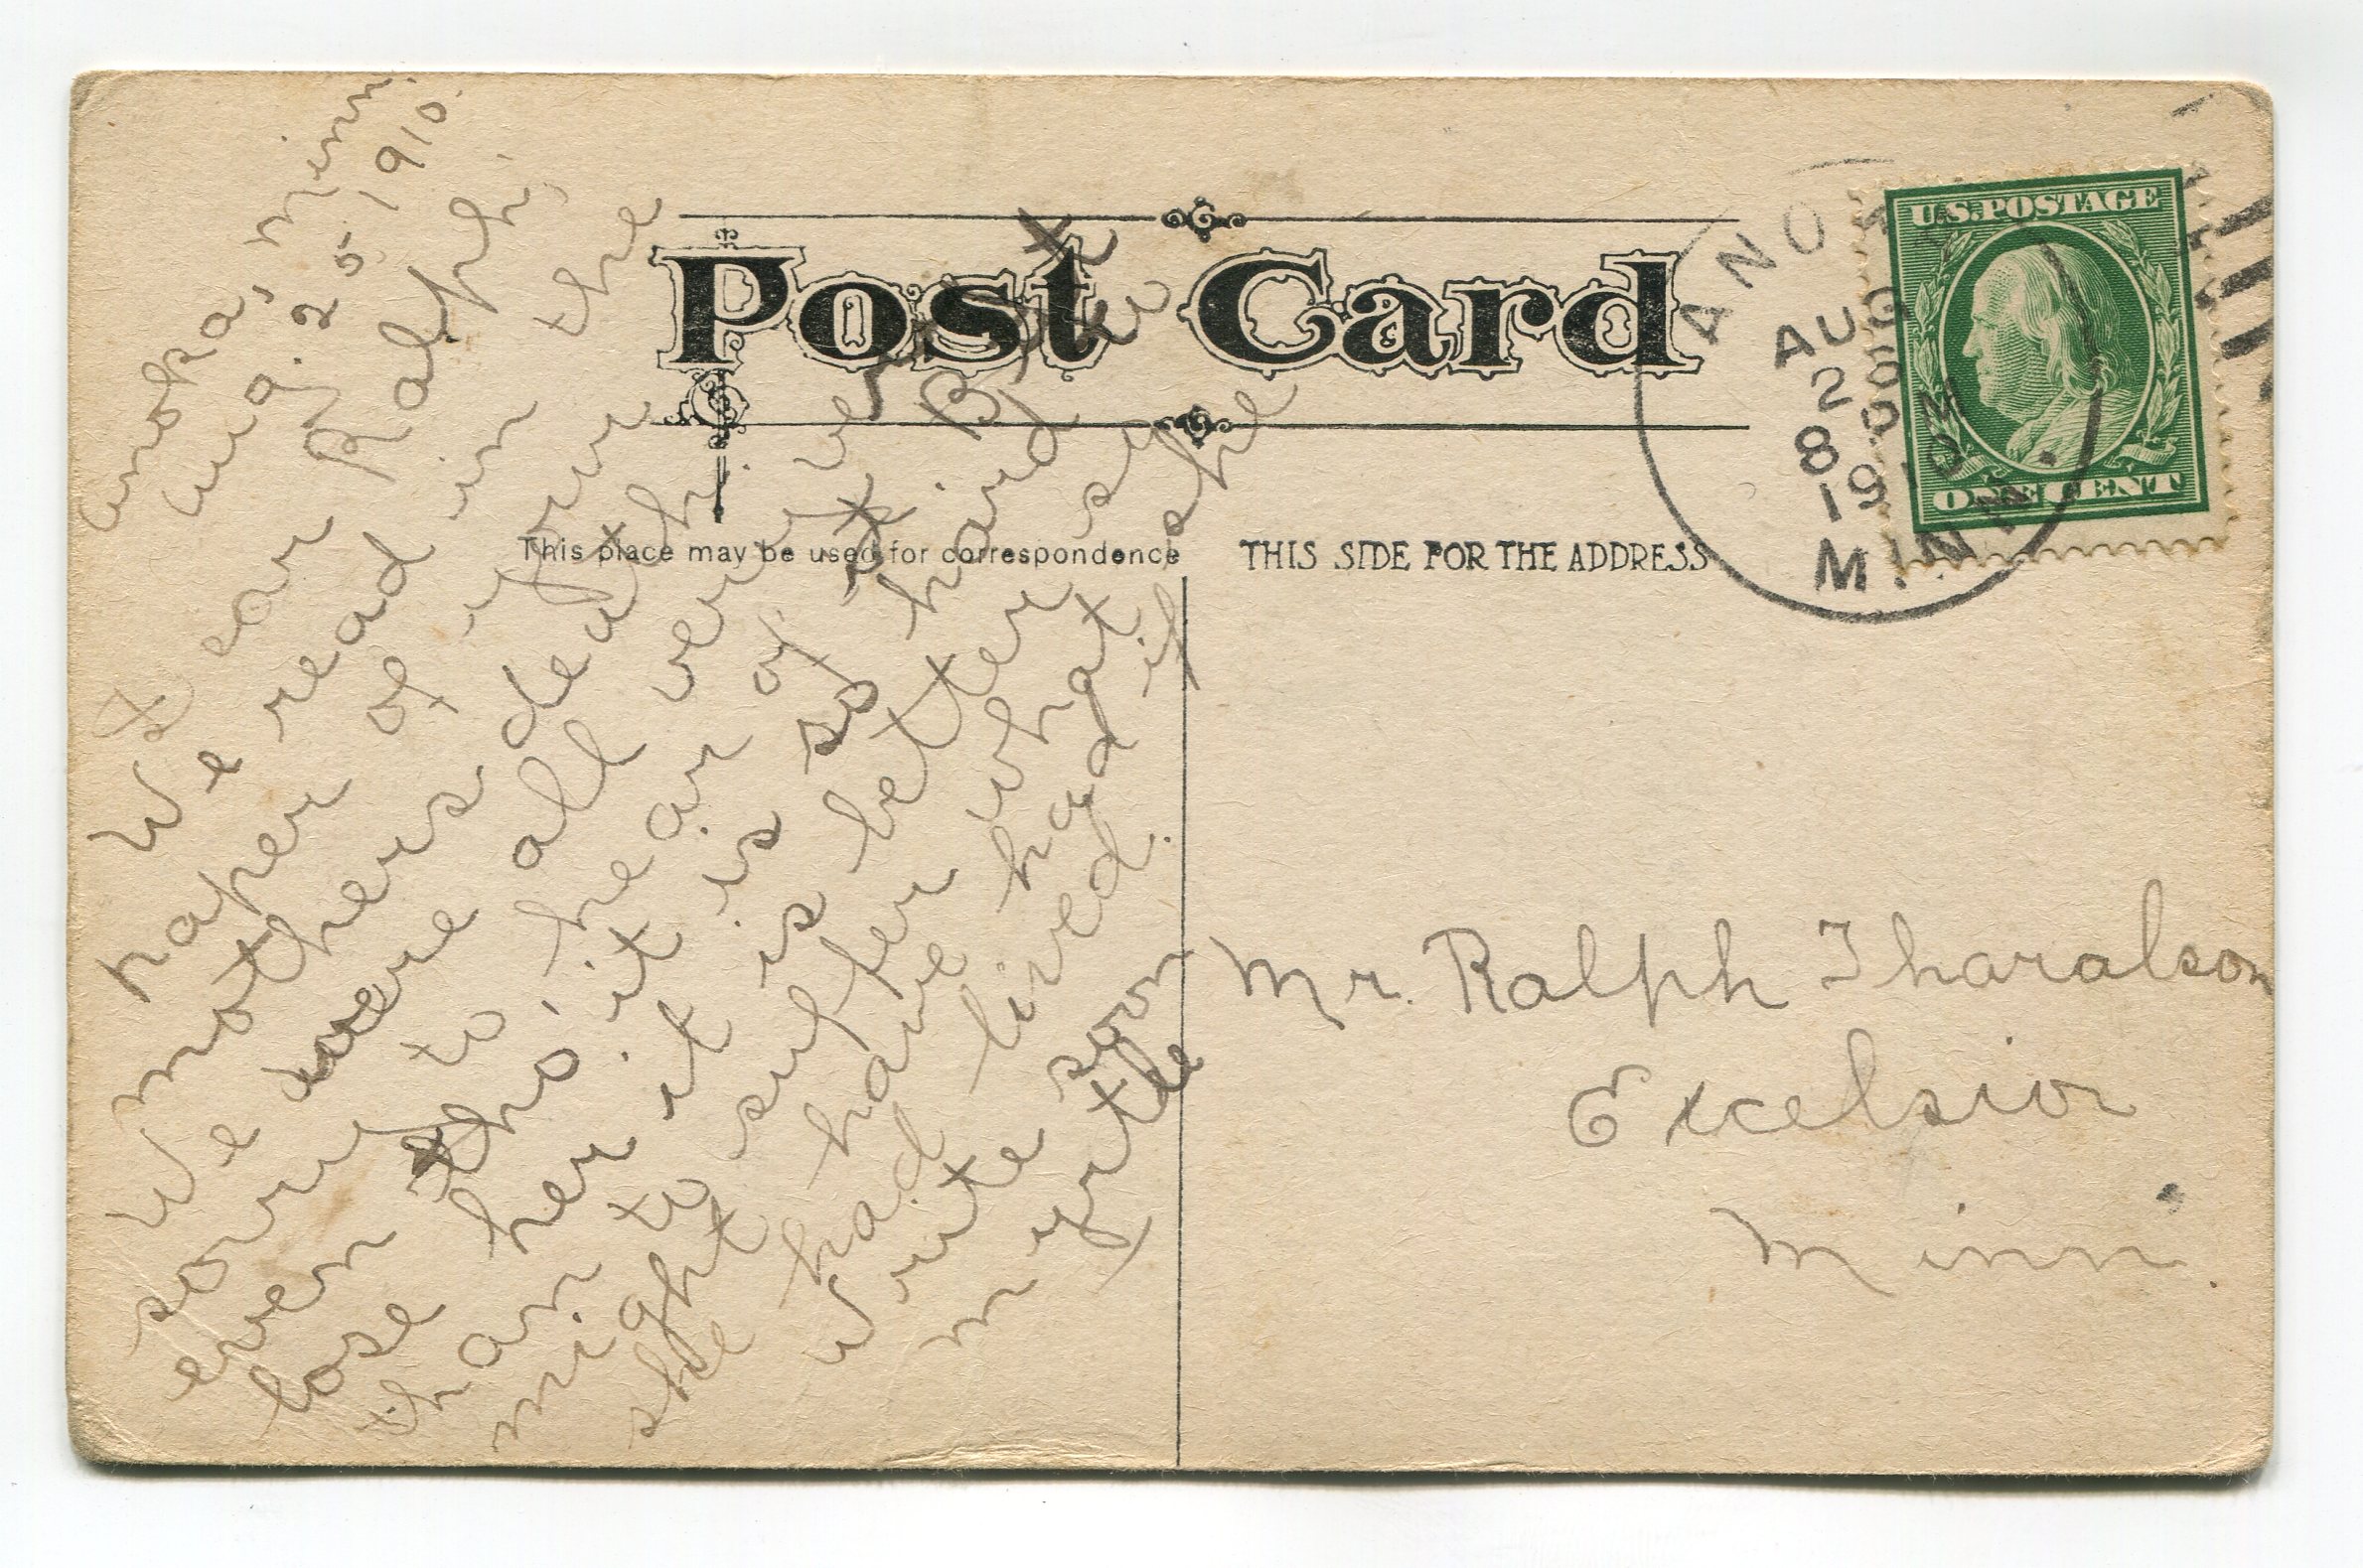 Post Card
This place may be used for correspondence
THIS SIDE FOR THE ADDRESS
U.S. POSTAGE
ONE CENT
ANOKA
AUG
2
8 PM
1910
MINN.
Anoka, Minn.
Aug. 25, 1910.
Dear Ralph;
We read in the
paper of your
mothers death.
We were all very very
sorry to hear of it. But
even tho' it is so hard
lose her it is better so
than to suffer what she
might have had if
she had lived.
Write soon
Myrtle
Mr. Ralph Tharalson
Excelsior
Minn.